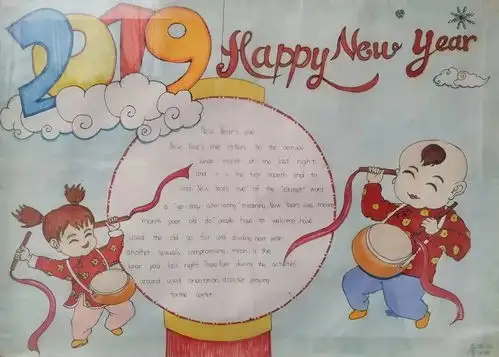 2019
Happy New Year
New Year's eve
New Year's eve refers to the annual
lunar month of the last night,
and it is the first month end to
end. New Year's eve" of the "except" word
is "go away; alternating" meaning, New Year's eve, meaning
"month poor old do", people have to welcome, have
used the old so far and dividing new year
another sexual compromising mean, is the
lunar year last night. Therefore during the activities
around used orientation, disaster praying
for the center.